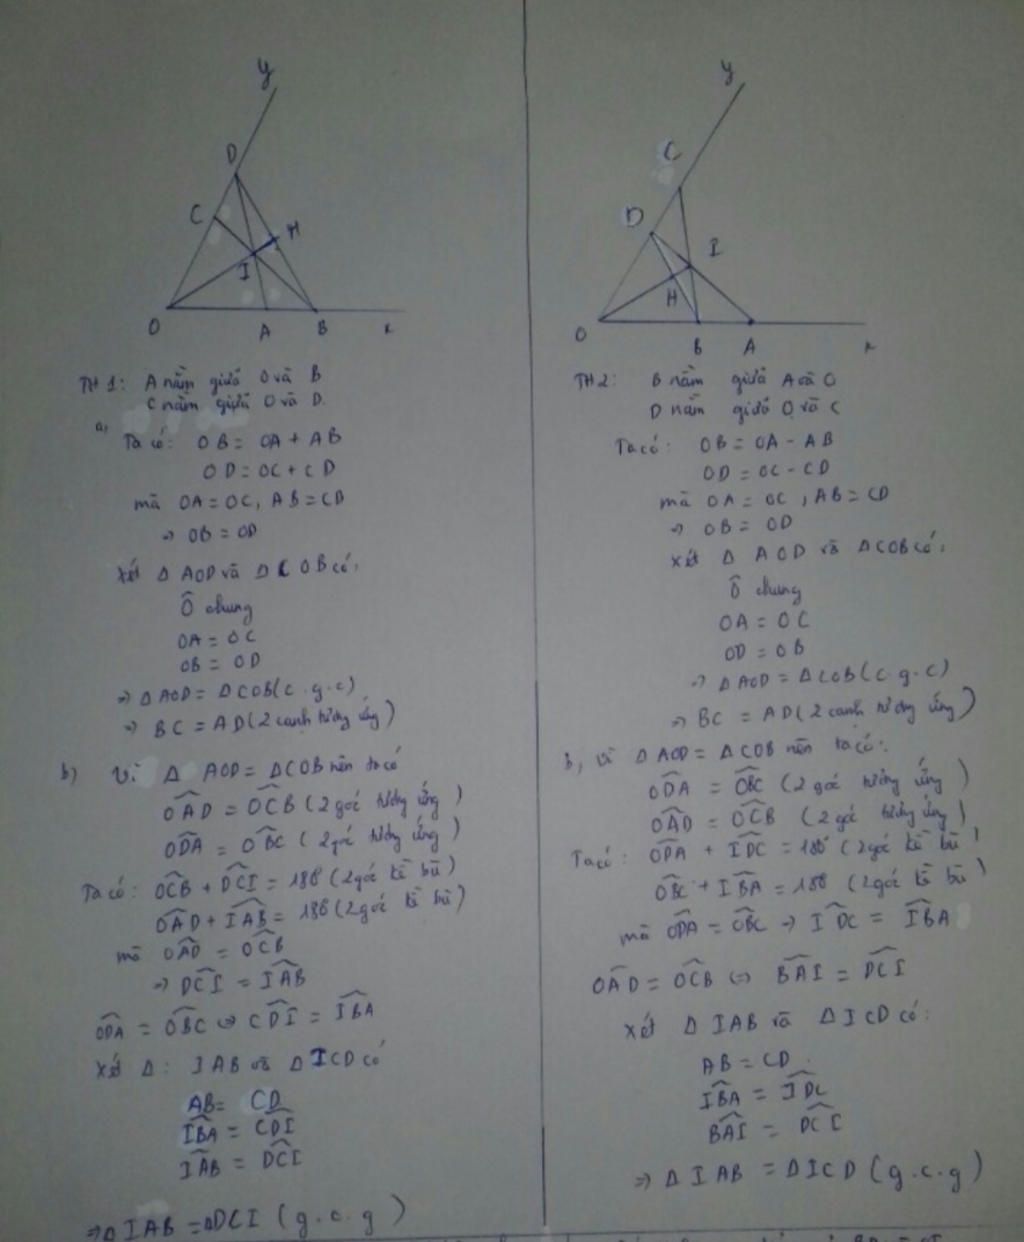 y
D
C
H
I
O
A
B
x
TH1: A nằm giữa O và B
C nằm giữa O và D.
a, Ta có: OB = OA + AB
OD = OC + CD
mà OA = OC, AB = CD
⇒ OB = OD
Xét Δ AOD và Δ COB có:
Ô chung
OA = OC
OB = OD
⇒ Δ AOD = Δ COB (c.g.c)
⇒ BC = AD (2 cạnh tương ứng)
b) Vì Δ AOD = Δ COB nên ta có
OAD = OCB (2 góc tương ứng)
ODA = OBC (2 góc tương ứng)
Ta có: OCB + DCI = 180 (2 góc kề bù)
OAD + IAB = 180 (2 góc kề bù)
mà OAD = OCB
⇒ DCI = IAB
ODA = OBC ⇔ CDI = IBA
Xét Δ: IAB và Δ ICD có
AB = CD
IBA = CDI
IAB = DCI
⇒ Δ IAB = Δ DCI (g.c.g)
y
C
D
I
H
O
B
A
x
TH2: B nằm giữa A và O
D nằm giữa O và C
Ta có: OB = OA - AB
OD = OC - CD
mà OA = OC, AB = CD
⇒ OB = OD
Xét Δ AOD và Δ COB có:
Ô chung
OA = OC
OD = OB
⇒ Δ AOD = Δ COB (c.g.c)
⇒ BC = AD (2 cạnh tương ứng)
b, Vì Δ AOD = Δ COB nên ta có:
ODA = OBC (2 góc tương ứng)
OAD = OCB (2 góc tương ứng)
Ta có: ODA + IDC = 180° (2 góc kề bù)
OBC + IBA = 180 (2 góc kề bù)
mà ODA = OBC ⇒ IDC = IBA
OAD = OCB ⇔ BAI = DCI
Xét Δ IAB và Δ ICD có:
AB = CD.
IBA = IDC
BAI = DCI
⇒ Δ IAB = Δ ICD (g.c.g)